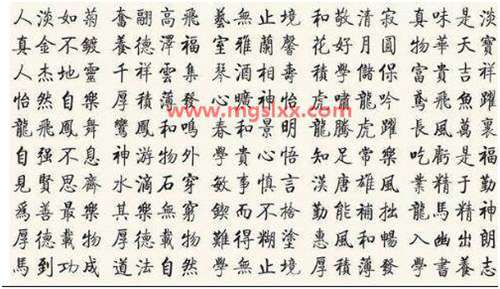 人淡如菊 奮翮高飛 藝無止境 和敬清寂 真味是淡
真金不鍍 養德澤福 室雅蘭馨 花好月圓 物華天寶
人杰地靈 千祥雲集 琴酒相壽 積學儲保 富貴吉祥
www.mgslxx.com
怡然自樂 厚積薄發 心曠神怡 虎嘯龍吟 鳶飛魚躍
龍飛鳳舞 鸞鳳和鳴 春和景明 龍騰虎躍 萬裏
自强不息 神游物外 學貴心悟 知足常樂 吃虧是福
見賢思齊 水滴石穿 敏事慎言 漢唐雄風 業精于勤
爲善最樂 其樂無窮 鍥而不捨 勤能補拙 龍馬精神
厚德載物 厚德載物 難得糊塗 惠風和暢 入幽出朗
馬到功成 道法自然 學無止境 厚積薄發 學書養志